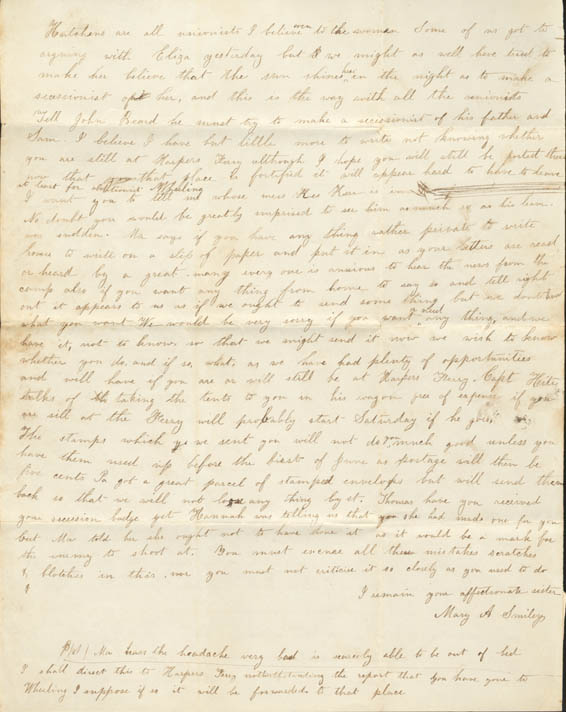 Hutchens are all unionists I believe even to the woman Some of us got to
arguing with Eliza yesterday but we might as well have tried to
make her believe that the sun shines here in the night as to make a
secessionist of her, and this is the way with all the unionists
Tell John Beard he must try to make a secessionist of his father and
Sam. I believe I have but little more to write not knowing whether
you are still at Harpers Ferry although I hope you will still be posted there
now that that place is fortified it will appear hard to have to leave
at least for Wheeling
I want you to tell us whose mess is in
No doubt you would be greatly surprised to see him as much so as his
was sudden. Ma says if you have any thing rather private to write
home to write on a slip of paper and put it in as your letters are read
or heard by a great many every one is anxious to hear the news from the
camp also if you want any thing from home to say so and tell right
out it appears to us as if we ought to send some thing but we dont know
what you want We would be very sorry if you want need any thing, and we
have it, not to know, so that we might send it now we wish to know
whether you do, and if so, what, as we have had plenty of opportunities
and will have if you are or will still be at Harpers Ferry. Capt Hite
talks of taking the tents to you in his wagon free of expense if you
are sill at the Ferry will probably start Saturday if he goes
The stamps which we sent you will not do you much good unless you
have them used up before the first of June as postage will then be
five cents Pa got a great parcel of stamped envelops but will send them
back so that we will not lose any thing by it. Thomas have you received
your secession badge yet Hannah was telling us that she had made one for you
but Ma told her she ought not to have done it as it would be a mark for
the enemy to shoot at. You must excuse all these mistakes scratches
& blotches in this. nor you must not criticise it so closely as you used to do
I remain your affectionate sister
Mary A Smiley
Ma has the headache very bad is scarcely able to be out of bed
I shall direct this to Harpers Ferry notwithstanding the report that you have gone to
Wheeling I suppose if so it will be forwarded to that place